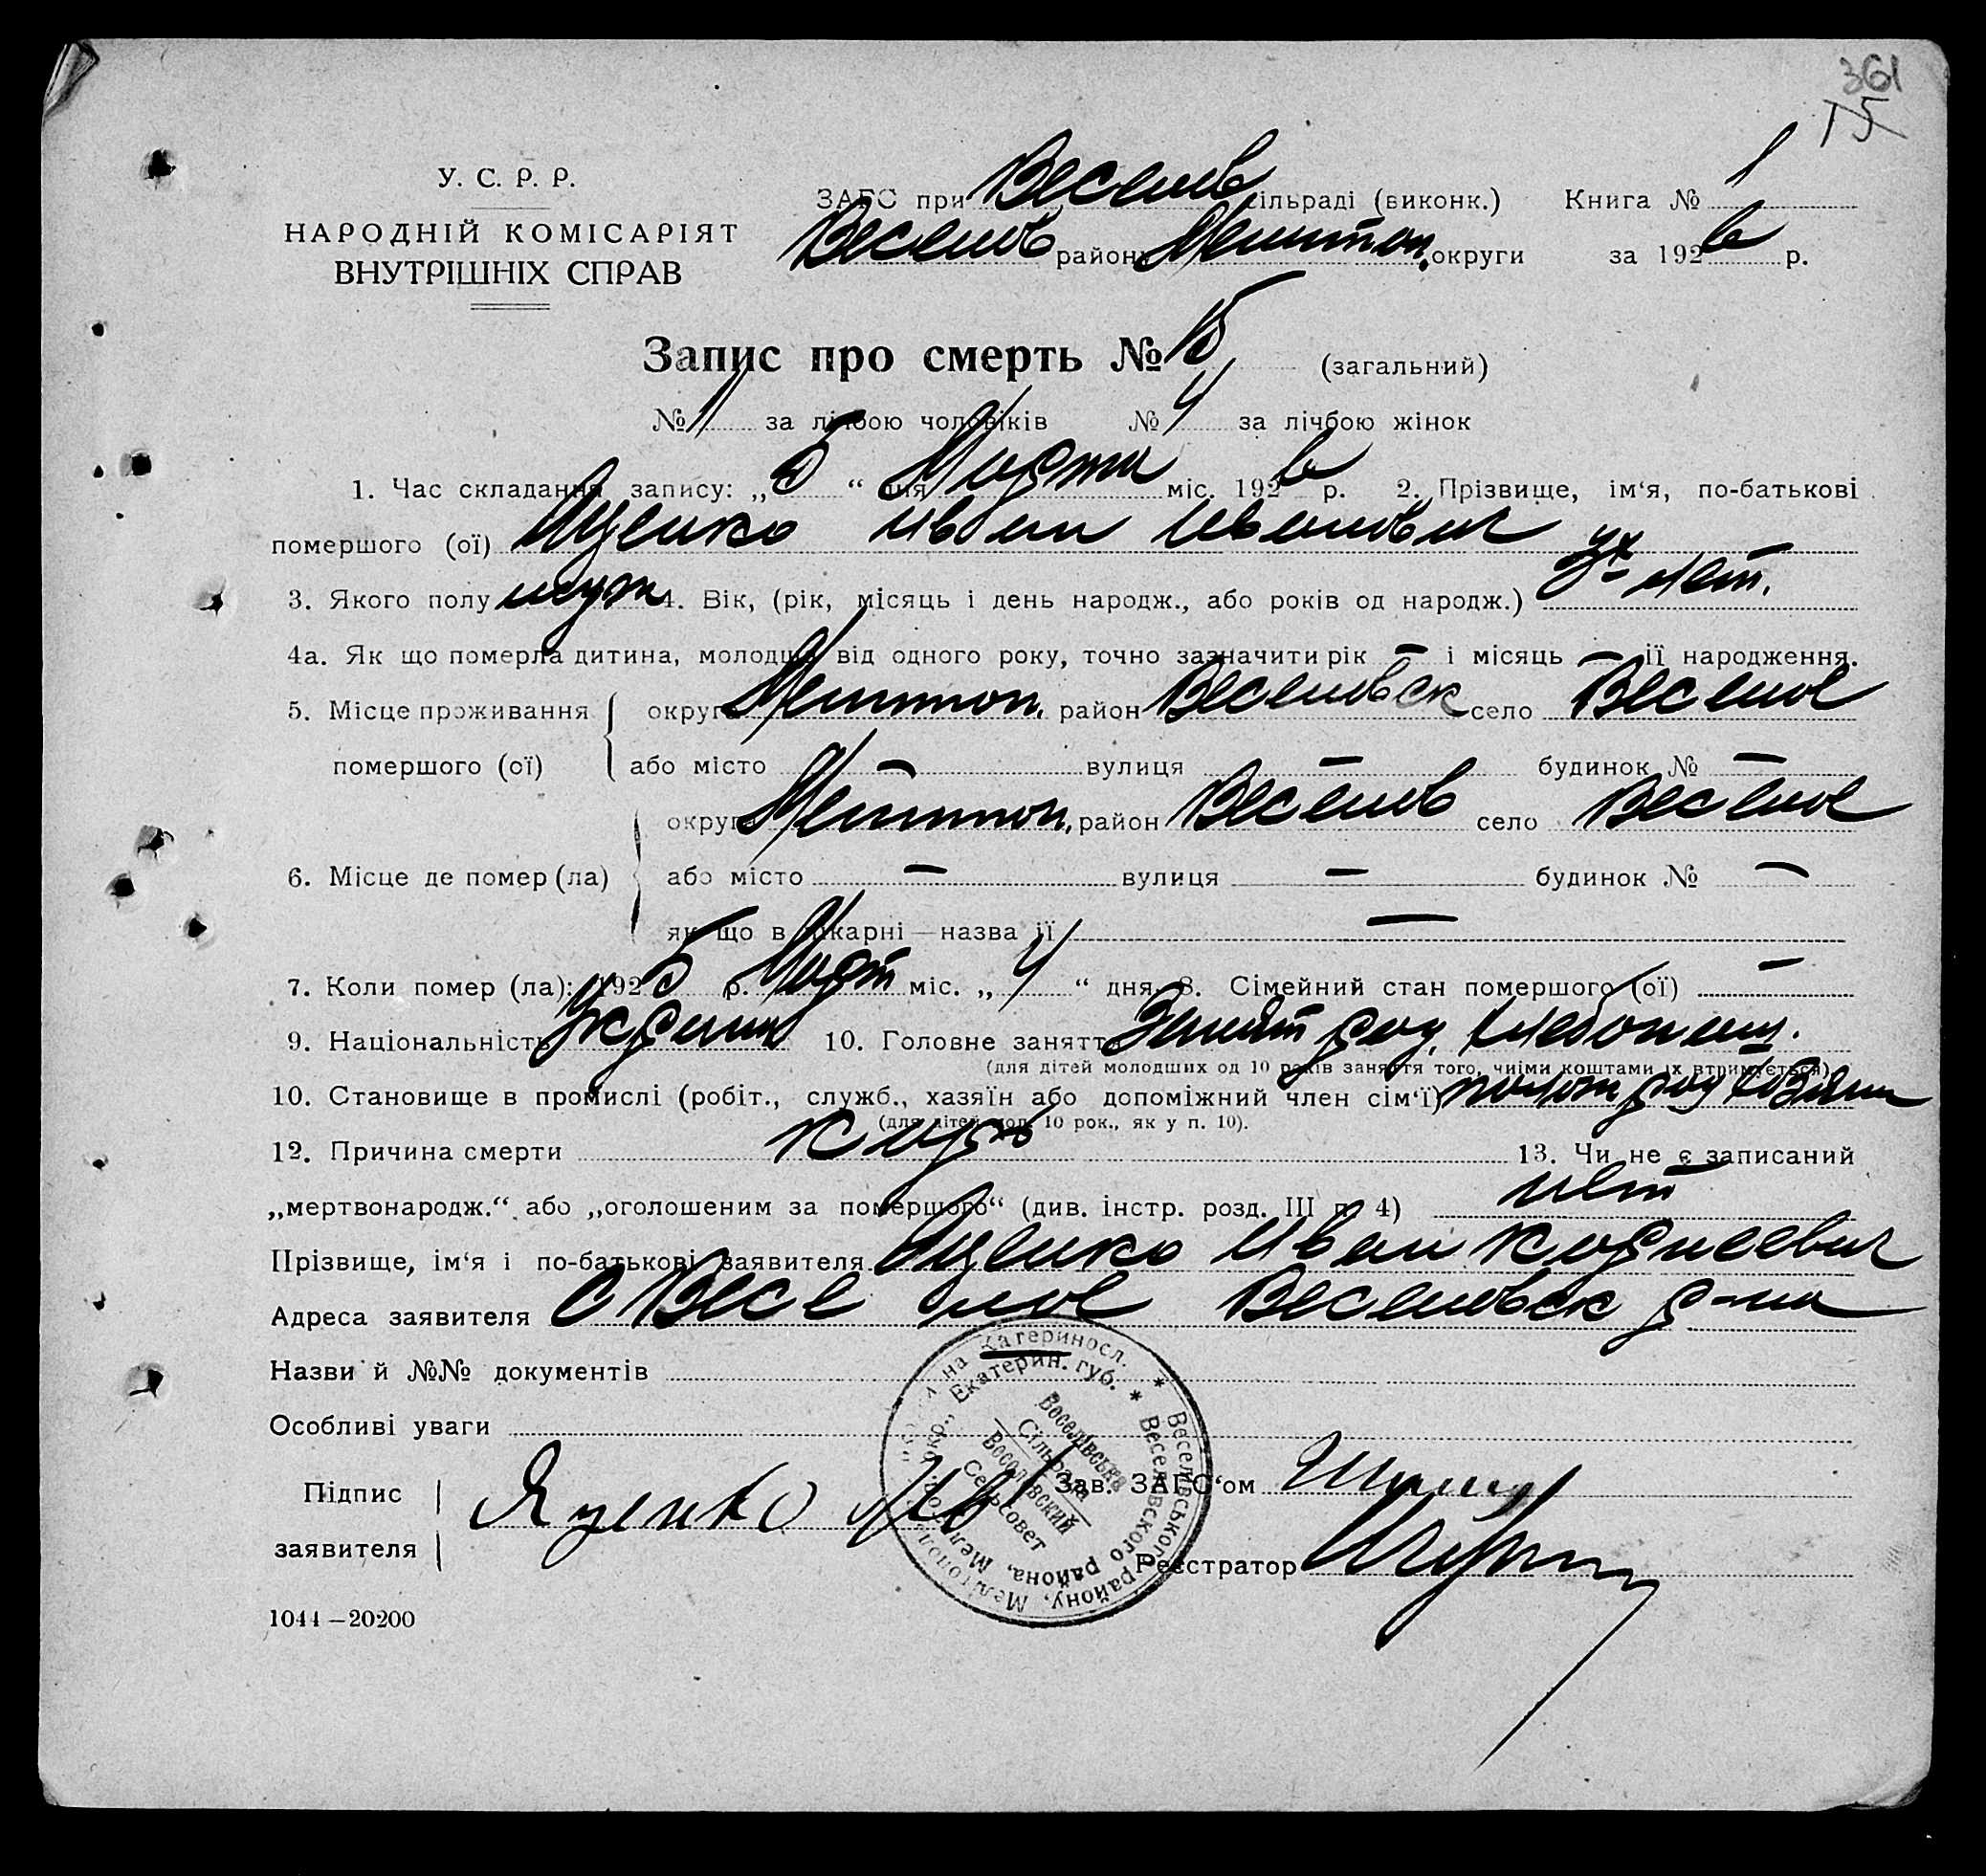 361
15
У. С. Р. Р.
НАРОДНІЙ КОМІСАРІЯТ
ВНУТРІШНІХ СПРАВ
ЗАГС при Веселов сільраді (виконк.) Книга № 1
Веселов району Мелитоп. округи за 1926 р.
Запис про смерть № 15 (загальний)
№ 11 за лічбою чоловіків № 4 за лічбою жінок
1. Час складання запису: „ 5 “ дня Марта міс. 1926 р. 2. Прізвище, ім‘я, по-батькові
помершого (ої) Яценко Иван Иванович
3. Якого полу муж 4. Вік, (рік, місяць і день народж., або років од народж.) лет.
4а. Як що померла дитина, молодша від одного року, точно зазначити рік — і місяць — її народження.
5. Місце проживання округа Мелитоп. район Веселовск село Веселое
помершого (ої) або місто — вулиця — будинок № —
округа Мелитоп. район Веселов село Веселое
6. Місце де помер (ла) або місто — вулиця — будинок № —
як що в лікарні — назва її —
7. Коли помер (ла): 192 р. Март міс. „ 4 “ дня 8. Сімейний стан помершого (ої) —
9. Національність Украин 10. Головне заняття Занят род. хлебопаш.
(для дітей молодших од 10 років заняття того, чиїми коштами їх втримується)
10. Становище в промислі (робіт., служб., хазяїн або допоміжний член сім‘ї) полож род хозяин
(для дітей мол. 10 рок., як у п. 10).
12. Причина смерти Корь 13. Чи не є записаний
„мертвонародж.“ або „оголошеним за помершого“ (див. інстр. розд. III п. 4) нет
Прізвище, ім‘я і по-батькові заявителя Яценко Иван Корнеевич
Адреса заявителя С Веселое Веселовск р-на
Назви й №№ документів
Особливі уваги
Підпис
заявителя
Яценко Ив
Зав. ЗАГС‘ом
Реєстратор
Веселівська
Сільрада
Веселовский
Сельсовет
Веселівського району, Мелітопол.
на Катериносл.
Веселовского района, Мелитопол. окр., Екатерин. губ.
1044—20200